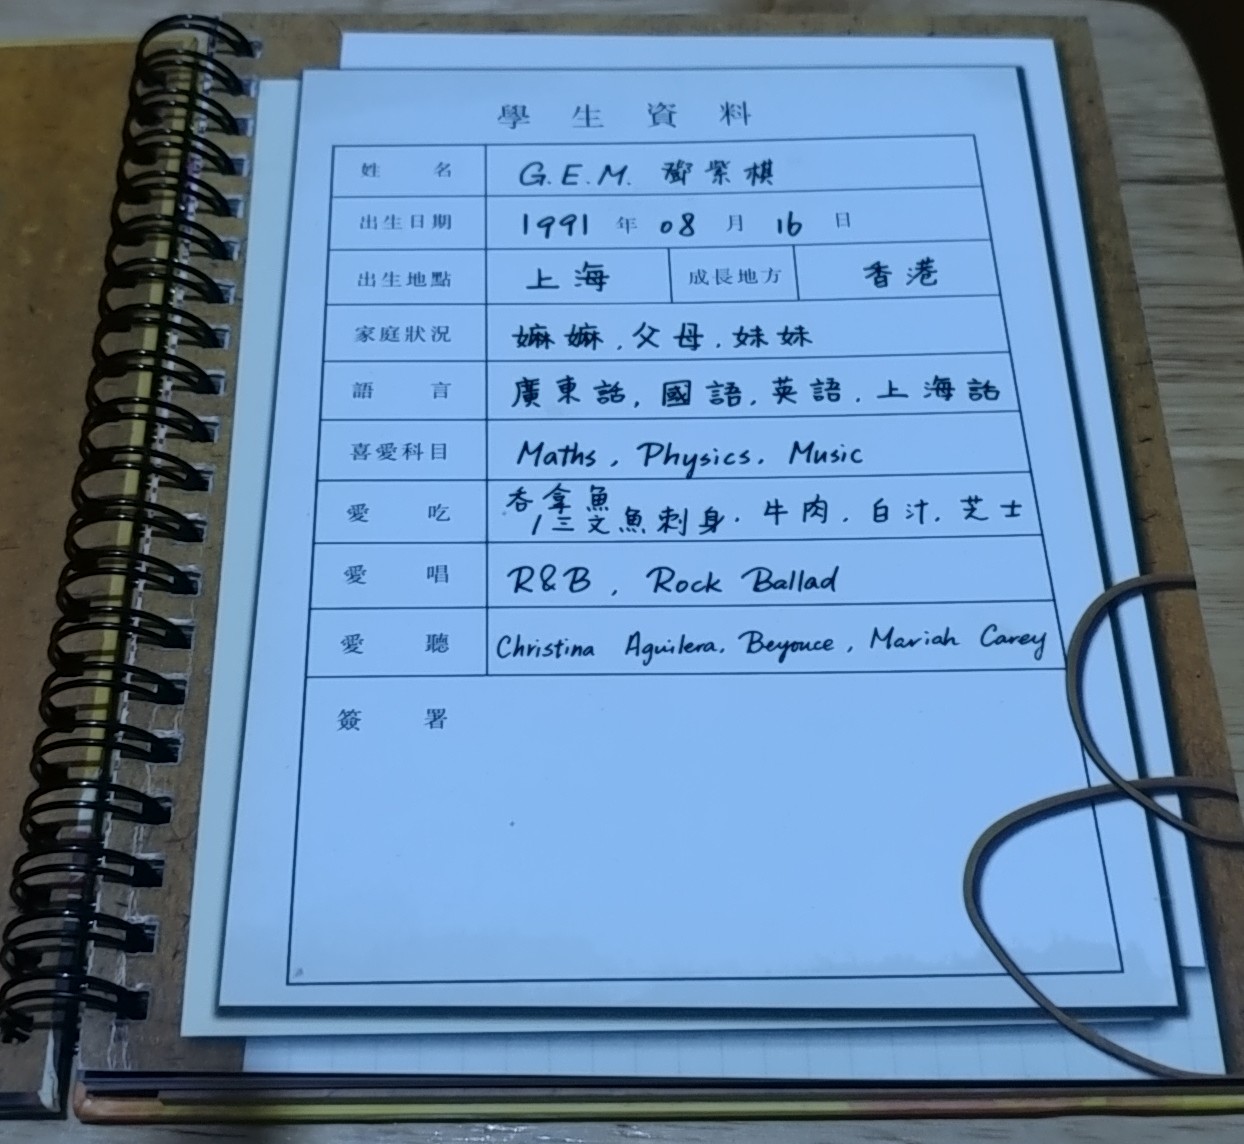 學生資料
姓名 G.E.M. 鄧紫棋
出生日期 1991 年 08 月 16 日
出生地點 上海 成長地方 香港
家庭狀況 嫲嫲, 父母, 妹妹
語言 廣東話, 國語, 英語, 上海話
喜愛科目 Maths, Physics, Music
愛吃 吞拿魚
/三文魚刺身, 牛肉, 白汁, 芝士
愛唱 R&B, Rock Ballad
愛聽 Christina Aguilera, Beyouce, Mariah Carey
簽署